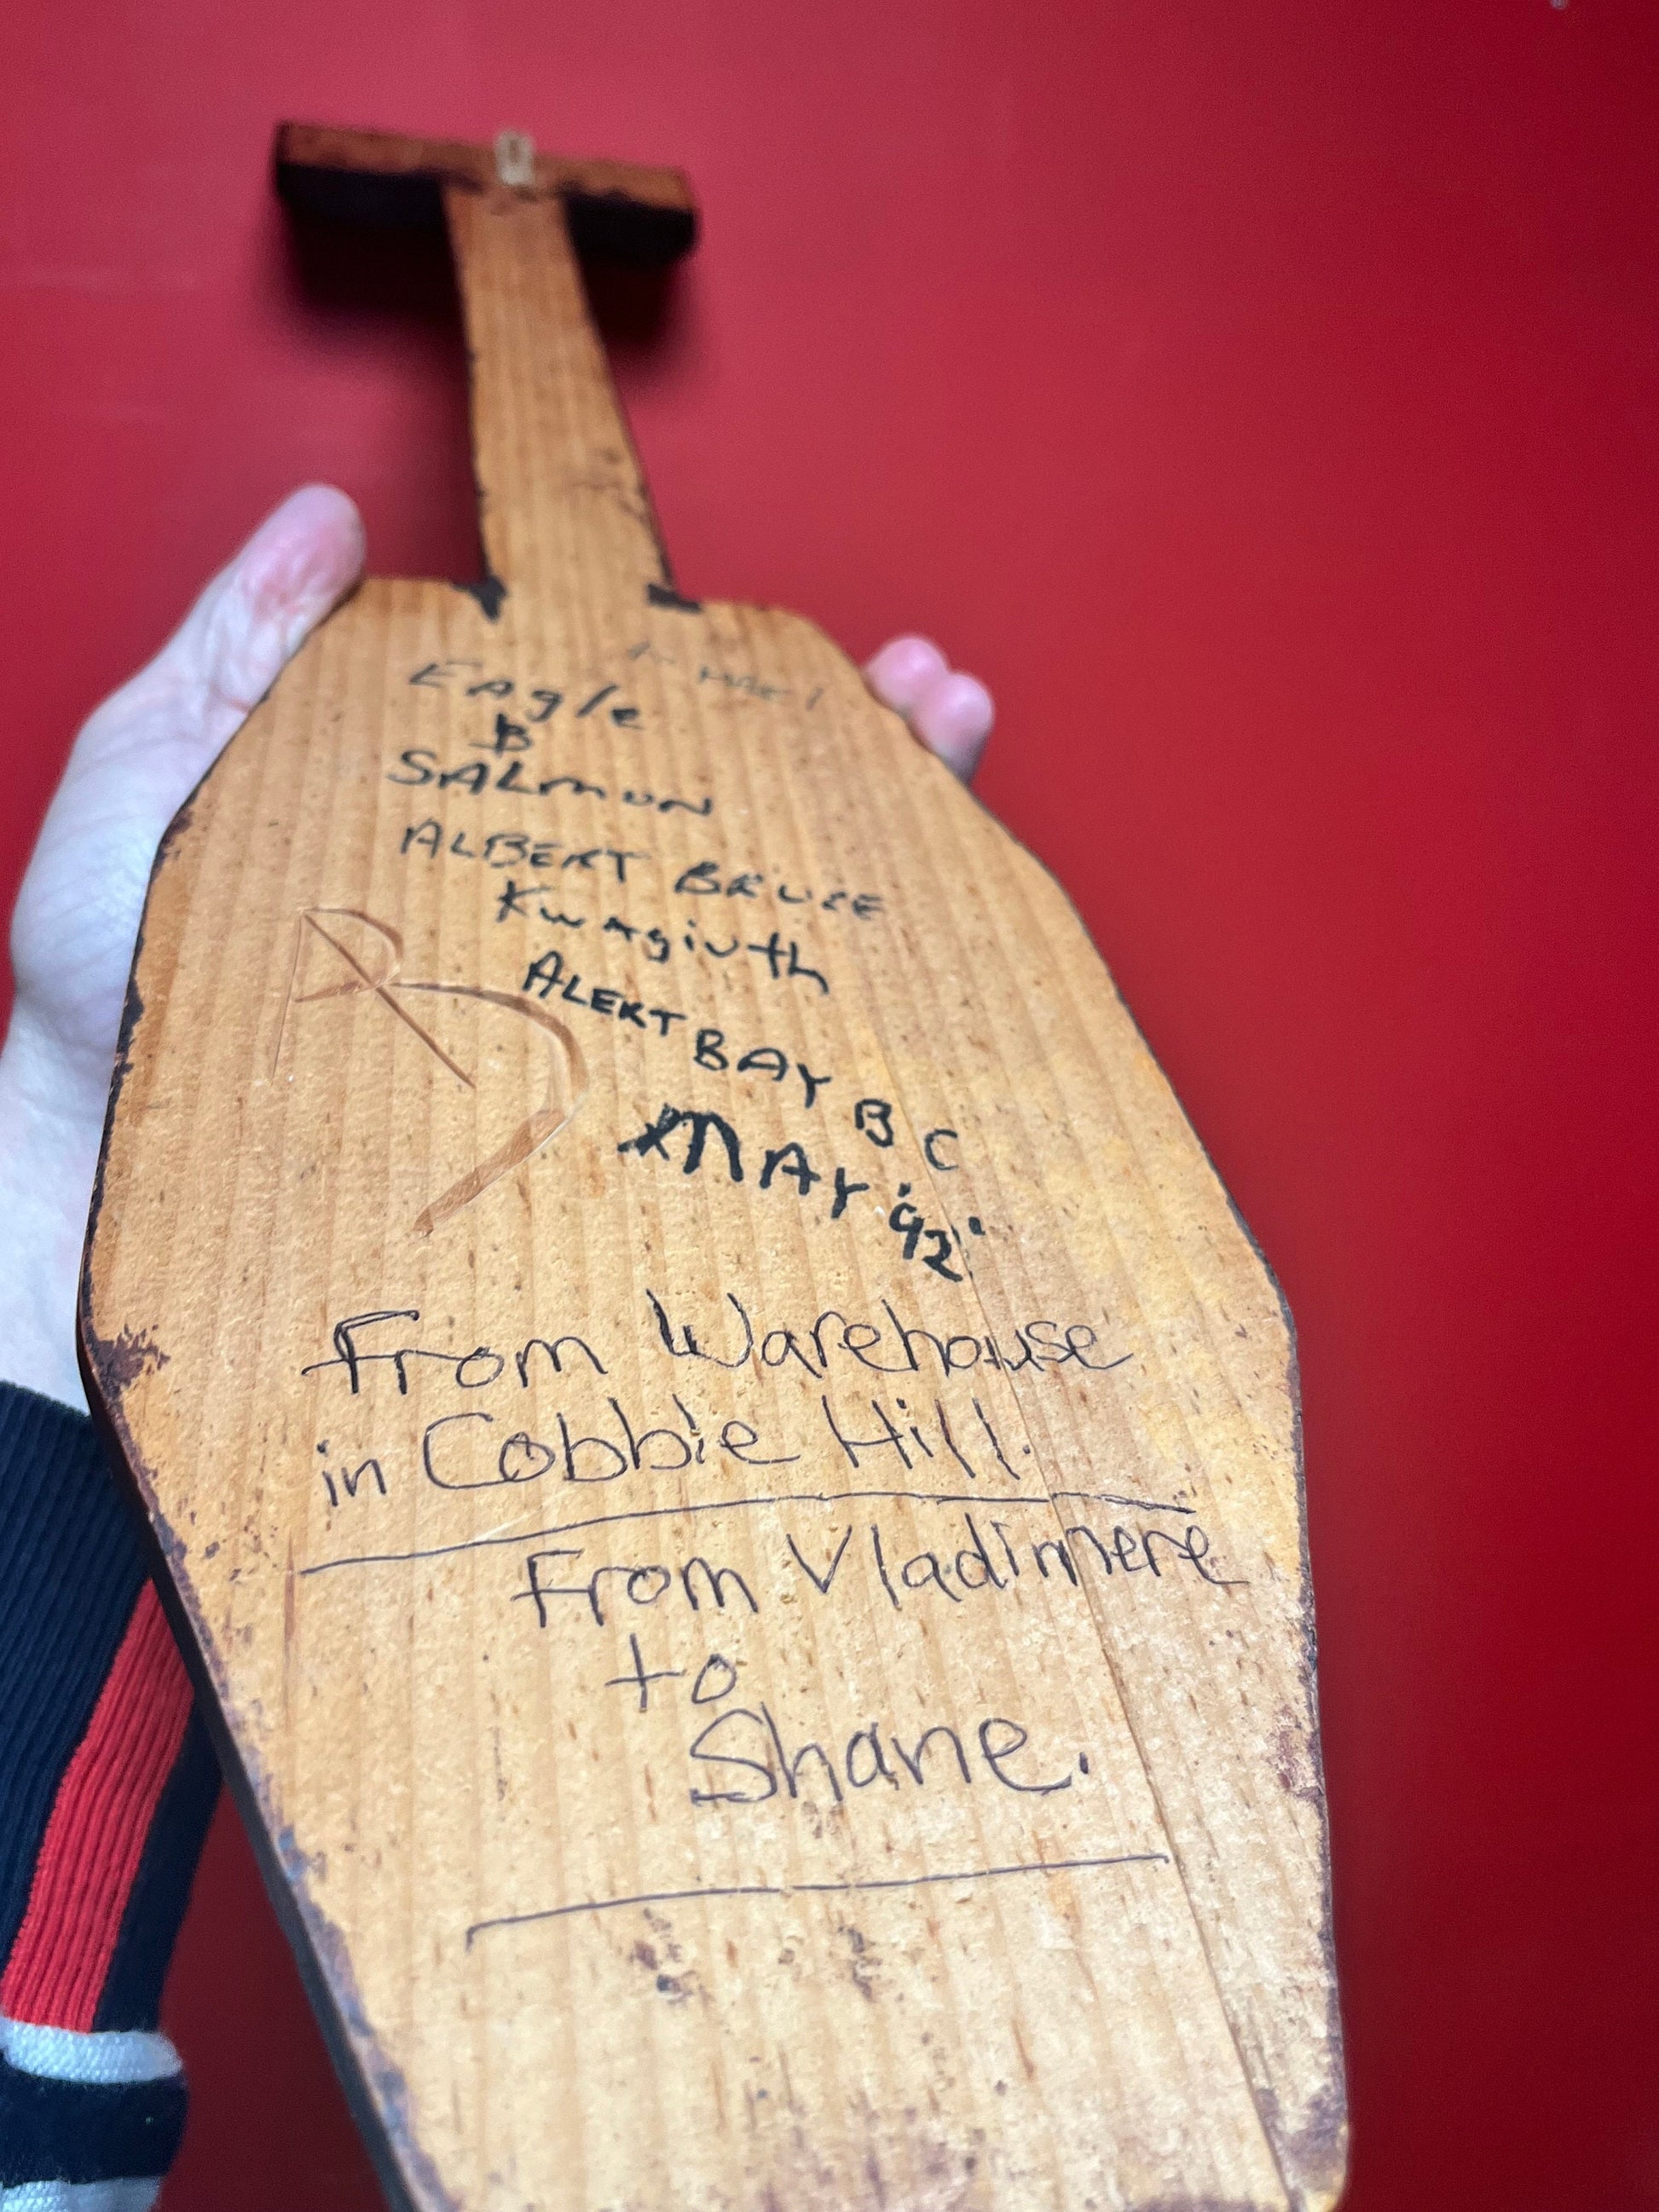 Eagle
&
SALmON
ALBERT BRUCE
Kwagiuth
ALERT BAY B C
MAY '92'
From Warehouse
in Cobble Hill.
From Vladimere
to
Shane.